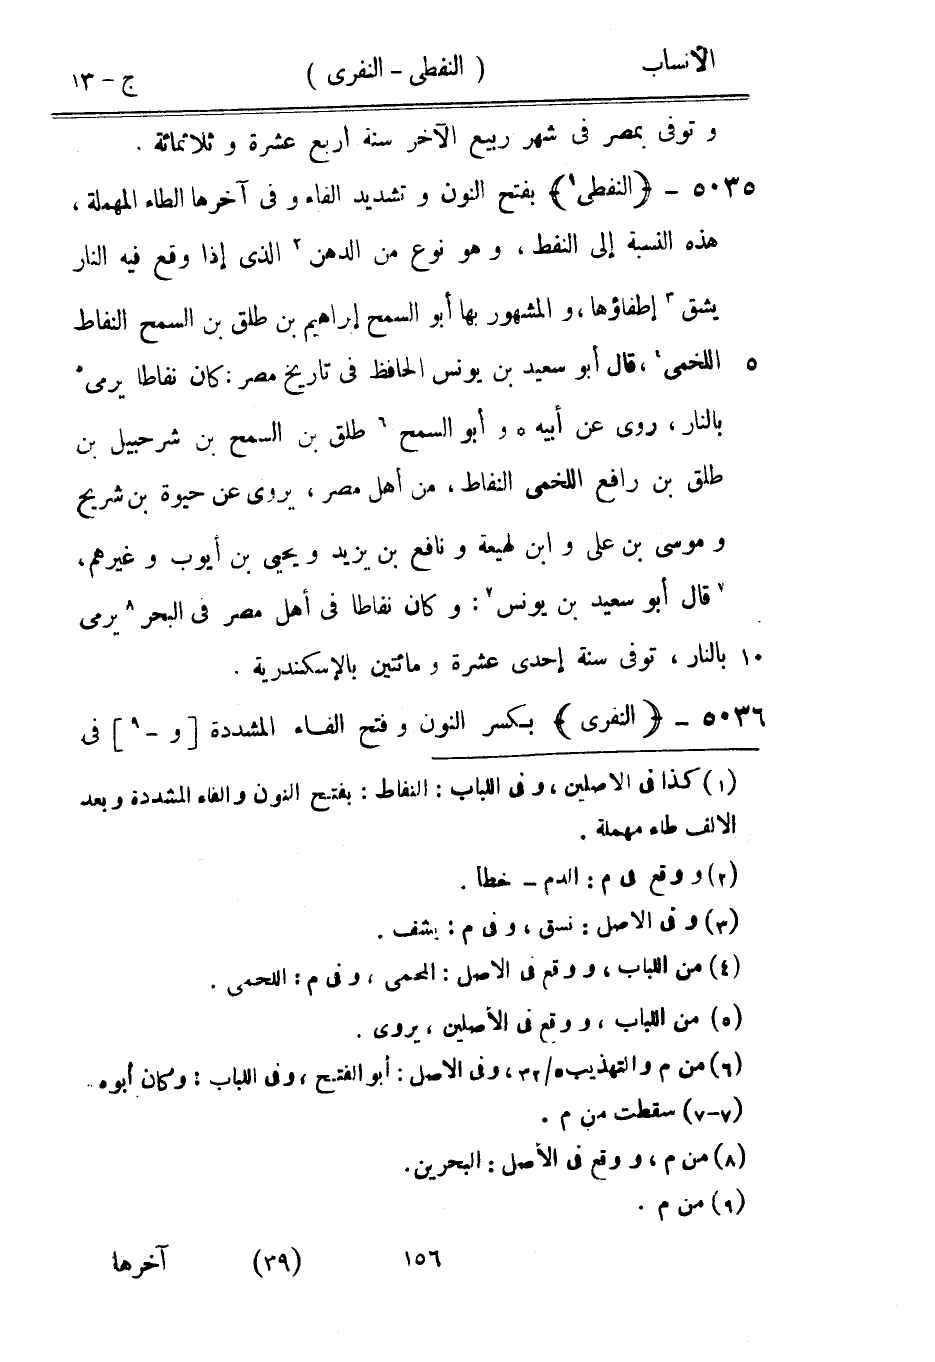 الأنساب ( النفطى - النفرى ) ج - ١٣
و توفى بمصر فى شهر ربيع الآخر سنة أربع عشرة و ثلاثمائة .
٥٠٣٥ - ﴿ النفطى ١ ﴾ بفتح النون و تشديد الفاء و فى آخرها الطاء المهملة ،
هذه النسبة إلى النفط ، و هو نوع من الدهن ٢ الذى إذا وقع فيه النار
يشق ٣ إطفاؤها ، و المشهور بها أبو السمح إبراهيم بن طلق بن السمح النفاط
٥ اللخمى ٤ ، قال أبو سعيد بن يونس الحافظ فى تاريخ مصر : كان نفاطا يرمى ٥
بالنار ، روى عن أبيه ٥ و أبو السمح ٦ طلق بن السمح بن شرحبيل بن
طلق بن رافع اللخمى النفاط ، من أهل مصر ، يروى عن حيوة بن شريح
و موسى بن على و ابن لهيعة و نافع بن يزيد و يحيى بن أيوب و غيرهم ،
٧ قال أبو سعيد بن يونس ٧ : و كان نفاطا فى أهل مصر فى البحر ٨ يرمى
١٠ بالنار ، توفى سنة إحدى عشرة و مائتين بالإسكندرية .
٥٠٣٦ - ﴿ النفرى ﴾ بكسر النون و فتح الفاء المشددة [ و - ٩ ] فى
(١) كذا فى الاصلين ، و فى اللباب : النفاط : بفتح النون والفاء المشددة و بعد
الالف طاء مهملة .
(٢) و وقع فى م : الدم - خطا .
(٣) و فى الاصل : نسق ، و فى م : يشف .
(٤) من اللباب ، و وقع فى الاصل : المحمى ، و فى م : اللحمى .
(٥) من اللباب ، و وقع فى الأصلين ، يروى .
(٦) من م والتهذيب ٥/ ٣٢ ، وفى الاصل : أبو الفتح ، وفى اللباب : وكان أبوه .
(٧-٧) سقطت من م .
(٨) من م ، و وقع فى الأصل : البحرين .
(٩) من م .
١٥٦ (٣٩) آخرها